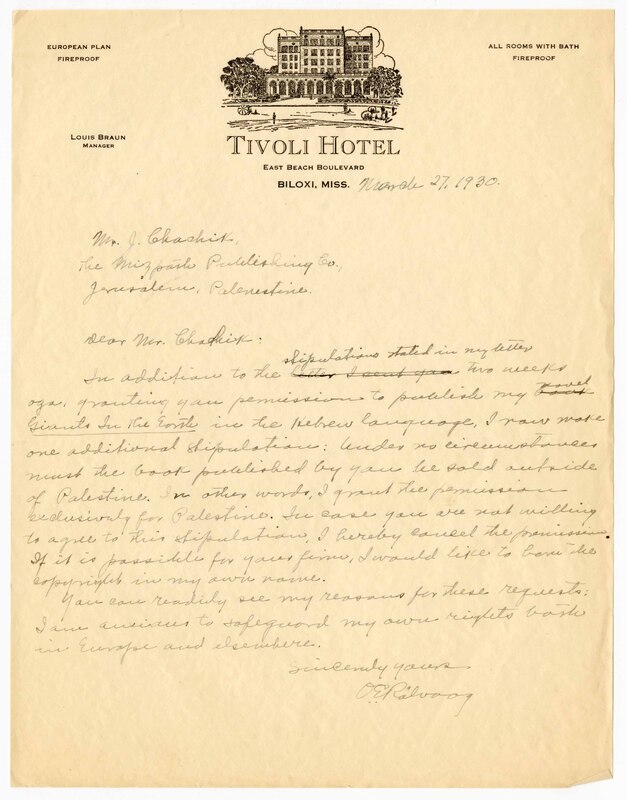 EUROPEAN PLAN
FIREPROOF
ALL ROOMS WITH BATH
FIREPROOF
LOUIS BRAUN
MANAGER
TIVOLI HOTEL
EAST BEACH BOULEVARD
BILOXI, MISS. March 27, 1930.
Mr. J. Chachik,
The Mizpath Publishing Co.,
Jerusalem, Palenestine.
Dear Mr. Chachik:
stipulations stated in my letter
In addition to the letter I sent you two weeks
ago, granting you permission to publish my book novel
Giants In the Earth in the Hebrew language, I now make
one additional stipulation: Under no circumstances
must the book published by you be sold outside
of Palestine. In other words, I grant the permission
exclusively for Palestine. In case you are not willing
to agree to this stipulation, I hereby cancel the permission.
If it is possible for your firm, I would like to have the
copyright in my own name.
You can readily see my reasons for these requests:
I am anxious to safeguard my own rights both
in Europe and elsewhere.
Sincerely yours
O.E. Rölvaag